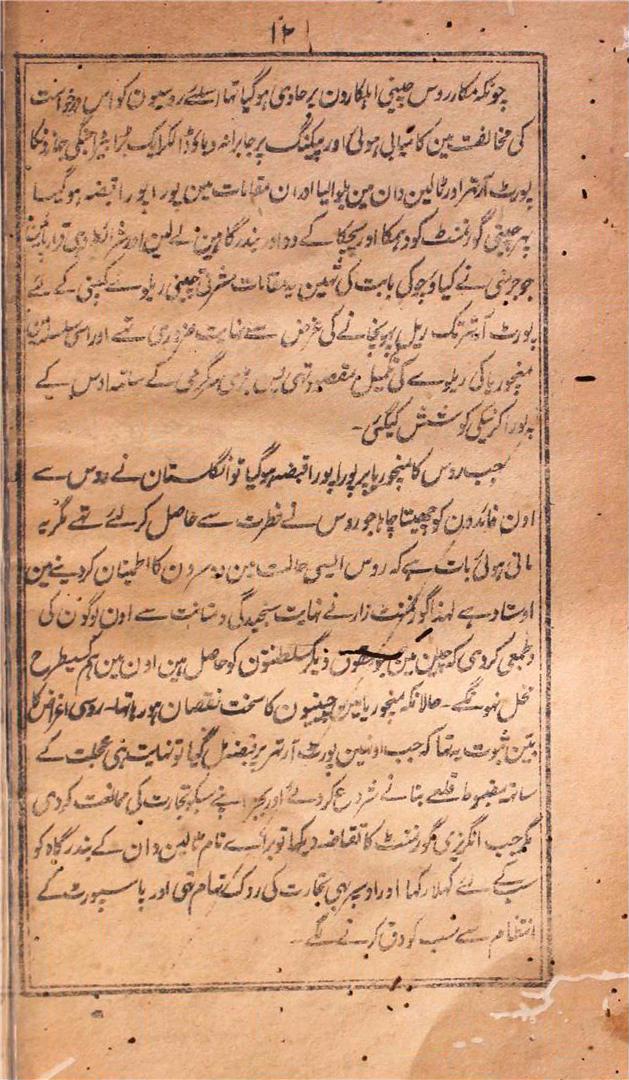 ۱۲
چونکہ مکار روس چینی اہلکارون پر حاوی ہو گیا تھا اسلئے روسیون کو اس درخواست
کی مخالفت مین کامیابی ہوئی اور پیکنگ پر جابرانہ دباؤ ڈالکر ایک بڑا بیڑا جنگی جہازونکا
پورٹ آرتھر اور ٹالین وان مین بلوالیا اور ان مقامات مین پورا پورا قبضہ ہو گیا
پھر چینی گورنمنٹ کو دہمکا اور کے دو اور بندرگاہین لے لین اور شرائط وہی قرار پائین
جو جرمنی نے کیاوچو کی بابت کی تہین یہ مقامات مشرقی چینی ریلوے کمپنی کے لئے
پورٹ آرتھر تک ریل پہونچانے کی غرض سے نہایت ضروری تھے اور اسی سلسلہ مین
منچوریا کی ریلوے کی تکمیل مقصود تہی پس بڑی سرگرمی کے ساتھ اوس کے
پورا کرنیکی کوشش کیگئی۔
جب روس کا منچوریا پر پورا پورا قبضہ ہو گیا تو انگلستان نے روس سے
اون فائدون کو چھیننا چاہا جو روس نے فطرت سے حاصل کر لئے تھے مگر یہ
مانی ہوئی بات ہے کہ روس ایسی حالت مین دوسرون کا اطمینان کر دینے مین
اوستاد ہے لہذا گورنمنٹ زار نے نہایت سنجیدگی و متانت سے اون لوگون کی
دلجمعی کر دی کہ چین مین جو حقوق دیگر سلطنتون کو حاصل ہین اون مین ہم کسیطرح
مخل نہونگے۔ حالانکہ منچوریا مین چینیون کا سخت نقصان ہو رہا تہا۔ روسی اغراض کا
بیّن ثبوت یہ تہا کہ جب اونہین پورٹ آرتھر پر قبضہ مل گیا تو نہایت ہی عجلت کے
ساتھ مضبوط قلعے بنانے شروع کر دئے اور بجز اپنے سبکو تجارت کی ممانعت کر دی
مگر جب انگریزی گورنمنٹ کا تقاضہ دیکہا تو برائے نام ٹالین وان کے بندرگاہ کو
سب کے لئے کہلا رکہا اور اوسپر بہی تجارت کی روک تہام تہی اور پاسپورٹ کے
انتظام سے سب کو دق کرنے لگے۔